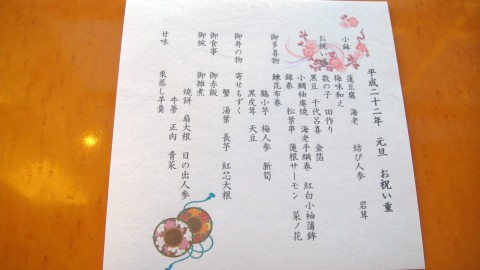 平成二十二年 元旦 お祝い重
小鉢
蓮豆腐 海老 結び人参 岩茸
梅味和え
お祝い盛
数の子 田作り
黒豆 千代呂喜 金箔
小鯛柚庵焼 海老手綱巻 紅白小袖蒲鉾
錦巻 松葉串 蓮根サーモン 菜ノ花
御多喜物
鰊昆布巻
鶴小芋 梅人参 新筍
黒皮茸 天豆
御寿の物
寄せもずく
蟹 湯葉 長芋 紅芯大根
御食事
御赤飯
御椀
御雑煮
焼餅 扇大根 日の出人参
牛蒡 正肉 青菜
甘味
栗蒸し羊羹